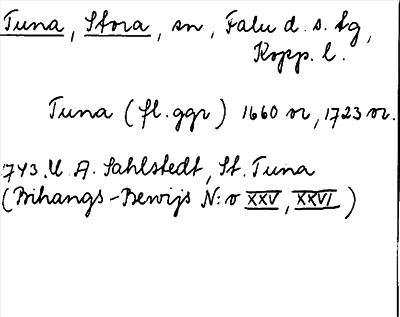 Tuna, Stora, sn, Falu d. s. tg,
Kopp. l.
Tuna (fl. ggr) 1660 or, 1723 or.
1743. U. A. Sahlstedt, St. Tuna
(Bihangs-Bewijs N:o XXV, XXVI)